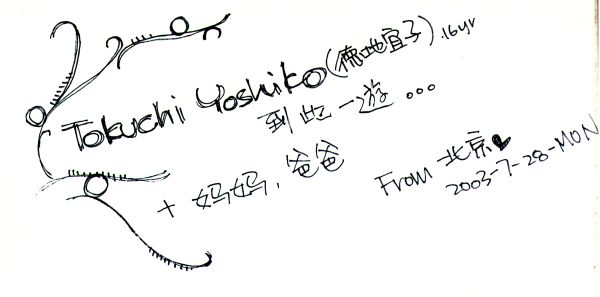 Tokuchi Yoshiko (德地宜子).16yr
到此一遊...
+ 妈妈,爸爸
From 北京♥
2003-7-28-MON